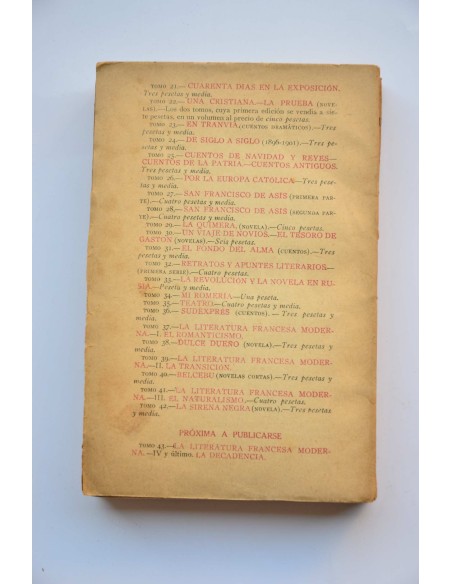 TOMO 21.—CUARENTA DIAS EN LA EXPOSICIÓN.
Tres pesetas y media.
TOMO 22.—UNA CRISTIANA.—LA PRUEBA (NOVE-
LAS).—Los dos tomos, cuya primera edición se vendía a sie-
te pesetas, en un volumen al precio de cinco pesetas.
TOMO 23.—EN TRANVIA (CUENTOS DRAMÁTICOS).—Tres
pesetas y media.
TOMO 24.—DE SIGLO A SIGLO (1896-1901).—Tres pe-
setas y media.
TOMO 25.—CUENTOS DE NAVIDAD Y REYES—
CUENTOS DE LA PATRIA.—CUENTOS ANTIGUOS.
Tres pesetas y media.
TOMO 26.—POR LA EUROPA CATÓLICA—Tres pese-
tas y media.
TOMO 27.—SAN FRANCISCO DE ASÍS (PRIMERA PAR-
TE).—Cuatro pesetas y media.
TOMO 28.—SAN FRANCISCO DE ASIS (SEGUNDA PAR-
TE).—Cuatro pesetas y media.
TOMO 29.—LA QUIMERA, (NOVELA).—Cinco pesetas.
TOMO 30.—UN VIAJE DE NOVIOS.—EL TESORO DE
GASTÓN (NOVELAS).—Seis pesetas.
TOMO 31.—EL FONDO DEL ALMA (CUENTOS).—Tres pe-
setas y media.
TOMO 32.—RETRATOS Y APUNTES LITERARIOS.—
(PRIMERA SERIE).—Cuatro pesetas.
TOMO 33.—LA REVOLUCIÓN Y LA NOVELA EN RU-
SIA.—Peseta y media.
TOMO 34.—MI ROMERÍA—Una peseta.
TOMO 35.—TEATRO—Cuatro pesetas y media.
TOMO 36.—SUDEXPRÉS (CUENTOS).—Tres pesetas y
media.
TOMO 37.—LA LITERATURA FRANCESA MODER-
NA.—I. EL ROMANTICISMO.
TOMO 38.—DULCE DUEÑO (NOVELA).—Tres pesetas y
media.
TOMO 39.—LA LITERATURA FRANCESA MODER-
NA.—II. LA TRANSICIÓN.
TOMO 40.—BELCEBÚ (NOVELAS CORTAS).—Tres pesetas y
media.
TOMO 41.—LA LITERATURA FRANCESA MODER-
NA.—III. EL NATURALISMO.—Cuatro pesetas.
TOMO 42.—LA SIRENA NEGRA (NOVELA).—Tres pesetas
y media.
PRÓXIMA A PUBLICARSE
TOMO 43.—LA LITERATURA FRANCESA MODER-
NA.—IV y último. LA DECADENCIA.